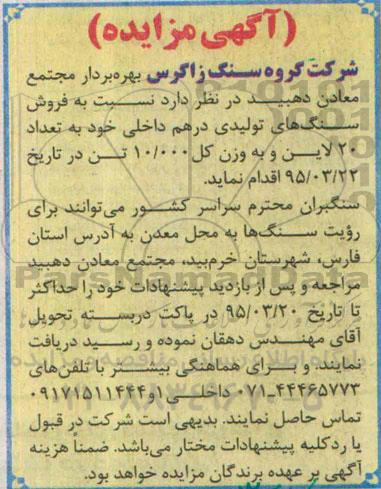 (آگهی مزایده)
شرکت گروه سنگ زاگرس بهره‌بردار مجتمع
معادن دهبید در نظر دارد نسبت به فروش
سنگ‌های تولیدی درهم داخلی خود به تعداد
۲۰ لاین و به وزن کل ۱۰/۰۰۰ تن در تاریخ
۹۵/۰۳/۲۲ اقدام نماید.
سنگبران محترم سراسر کشور می‌توانند برای
رؤیت سنگ‌ها به محل معدن به آدرس استان
فارس، شهرستان خرم‌بید، مجتمع معادن دهبید
مراجعه و پس از بازدید پیشنهادات خود را حداکثر
تا تاریخ ۹۵/۰۳/۲۰ در پاکت دربسته تحویل
آقای مهندس دهقان نموده و رسید دریافت
نمایند. و برای هماهنگی بیشتر با تلفن‌های
۰۷۱-۴۴۴۶۵۷۷۳ داخلی ۱ و ۰۹۱۷۱۵۱۱۴۴۴
تماس حاصل نمایند. بدیهی است شرکت در قبول
یا رد کلیه پیشنهادات مختار می‌باشد. ضمناً هزینه
آگهی بر عهده برندگان مزایده خواهد بود.
ParsNamadData